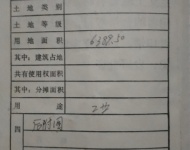 土地类别
土地等级
用地面积 6389.50
其中：建筑占地
共有使用权面积
其中：分摊面积
用途 工业
四